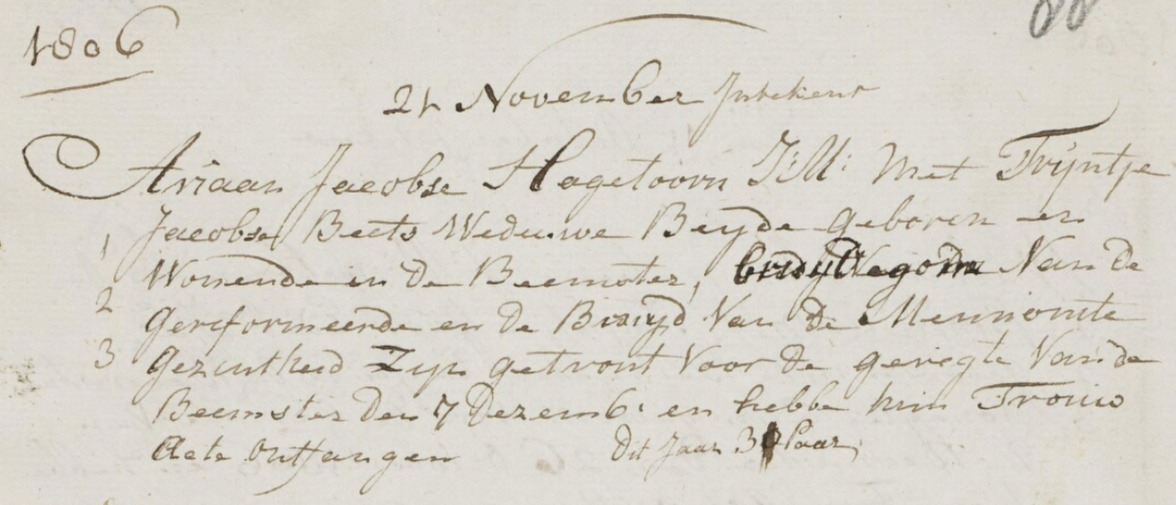 1806
21 November Intekent
Ariaan Jacobse Hagetoorn J:M: Met Trijntje
Jacobse Beets Weduwe Beyde geboren en
1 Wonende in de Beemster, bruydegom Van de
2 Gereformeerde en de Bruyd Van De Mennonite
3 Gezintheid Zyn getrout Voor de geregte Van de
Beemster Den 7 Dezemb: en hebbe hun Trouw
Acte ontfangen Dit Jaar 3 Paar